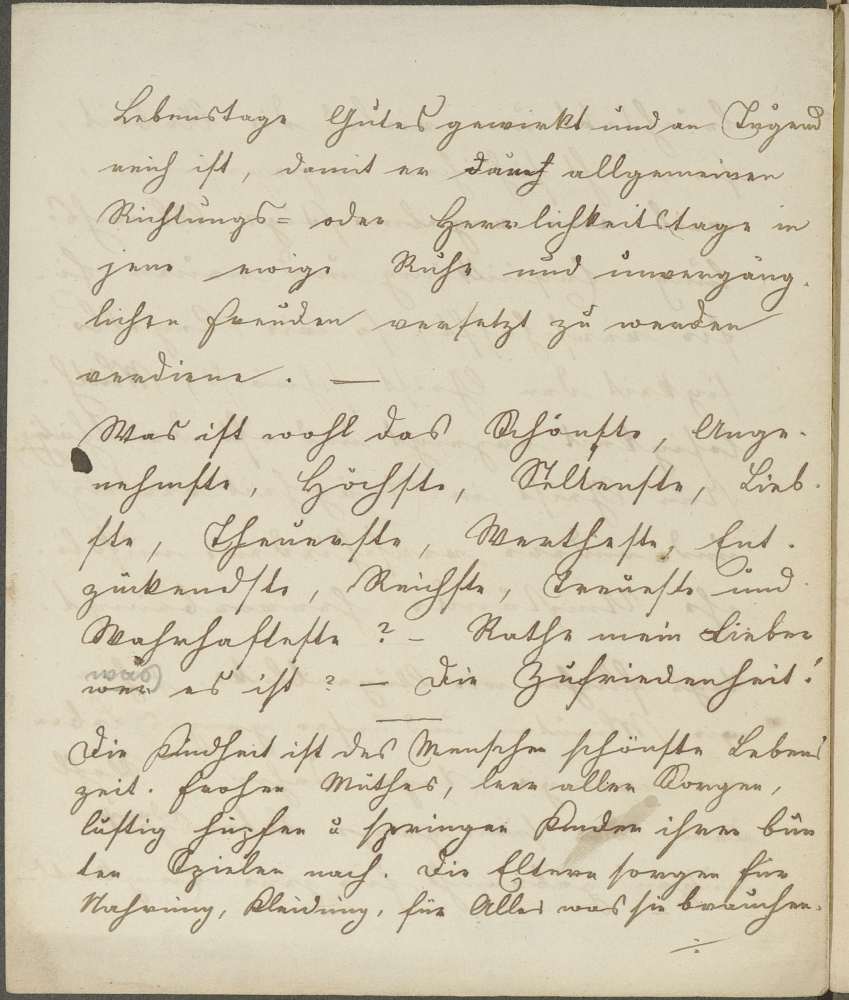 Lebenstage Gutes gewirkt und an Tugend
reich ist, damit er durch allgemeinen
Richtungs= oder Herrlichkeitstage in
jene ewige Ruhe und unvergäng-
lichen Freuden versetzt zu werden
verdiene. —
Was ist wohl das Schönste, Ange-
nehmste, Höchste, Seltenste, Lieb-
ste, Theuerste, Wertheste, Ent-
zückendste, Reichste, Treueste und
Wahrhafteste? – Rathe mein Lieber
was es ist? – Die Zufriedenheit!
Die Kindheit ist des Menschen schönste Lebens
zeit. Frohen Muthes, leer aller Sorgen,
lustig hüpfen u springen Kinder ihren bun
ten Spielen nach. Die Eltern sorgen für
Nahrung, Kleidung, für Alles was sie brauchen.